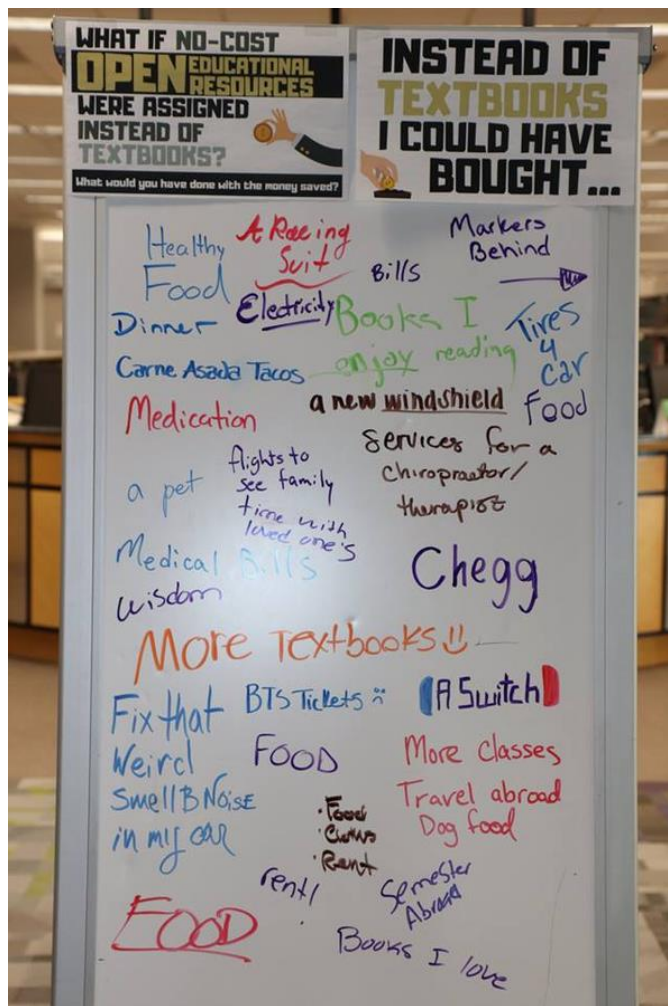 WHAT IF NO-COST
OPEN EDUCATIONAL
RESOURCES
WERE ASSIGNED
INSTEAD OF
TEXTBOOKS?
What would you have done with the money saved?
INSTEAD OF
TEXTBOOKS
I COULD HAVE
BOUGHT...
Healthy
Food
A Racing
Suit
Bills
Markers
Behind
Dinner
Electricity
Books I
enjoy reading
Tires
4
car
Carne Asada Tacos
Medication
a new windshield
Food
flights to
see family
time with
loved one's
Services for a
chiropractor/
therapist
a pet
Medical Bills
Wisdom
Chegg
More Textbooks
Fix that
Weird
Smell B Noise
in my car
BTS Tickets
A Switch
FOOD
More classes
Travel abroad
Dog food
• Food
•
• Rent
rent!
Semester
Abroad
FOOD
Books I love